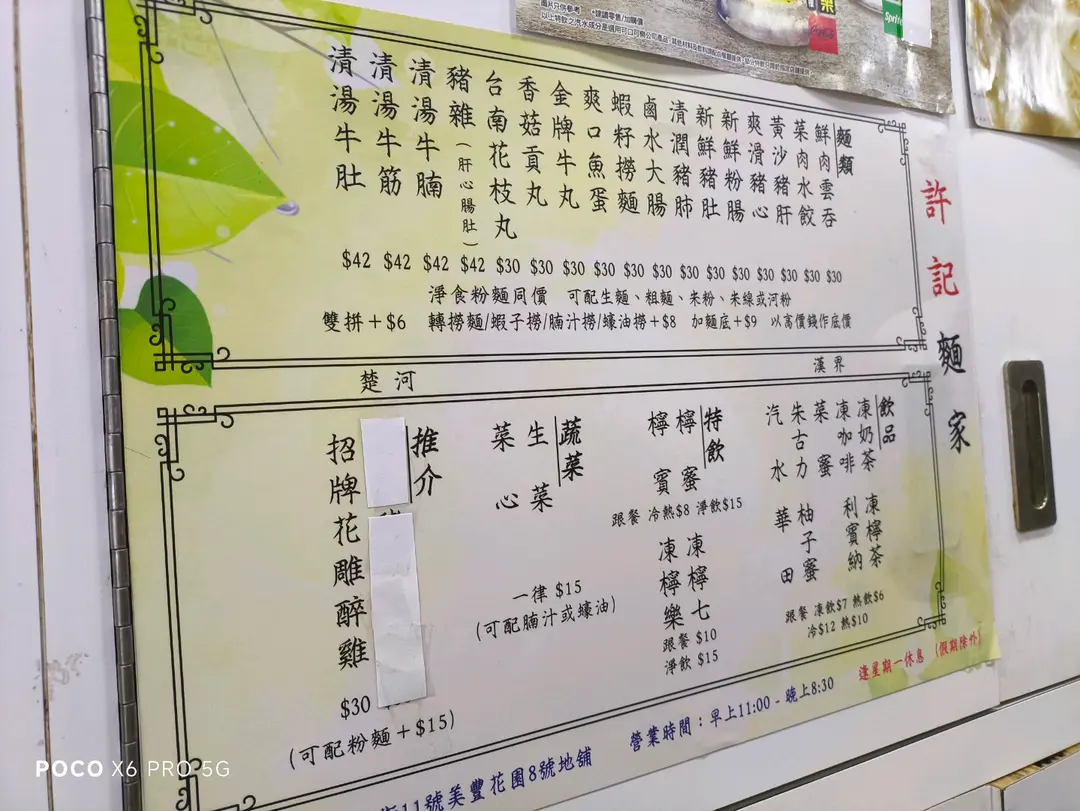 圖片只供參考 *建議零售/加購價
Coca-Cola
Sprite
許記麵家
麵類
鮮肉雲吞
菜肉水餃
黃沙豬肝
爽滑豬心
新鮮粉腸
新鮮豬肚
清潤豬肺
鹵水大腸
蝦籽撈麵
爽口魚蛋
金牌牛丸
香菇貢丸
台南花枝丸
豬雜(肝心腸肚)
清湯牛腩
清湯牛筋
清湯牛肚
$42 $42 $42 $42 $30 $30 $30 $30 $30 $30 $30 $30 $30 $30 $30 $30 $30
淨食粉麵同價 可配生麵、粗麵、米粉、米線或河粉
雙拼+$6 轉撈麵/蝦子撈/腩汁撈/蠔油撈+$8 加麵底+$9 以高價錢作底價
楚河 漢界
飲品
凍奶茶
凍咖啡
菜蜜
朱古力
汽水
凍檸茶
利賓納
柚子蜜
華田
跟餐 凍飲$7 熱飲$6
冷$12 熱$10
特飲
檸蜜
檸賓
跟餐 冷熱$8 淨飲$15
凍檸七
凍檸樂
跟餐 $10
淨飲 $15
蔬菜
生菜
菜心
一律 $15
(可配腩汁或蠔油)
推介
招牌花雕醉雞
$30
(可配粉麵+$15)
逢星期一休息 (假期除外)
營業時間：早上11:00 - 晚上8:30
街11號美豐花園8號地舖
POCO X6 PRO 5G